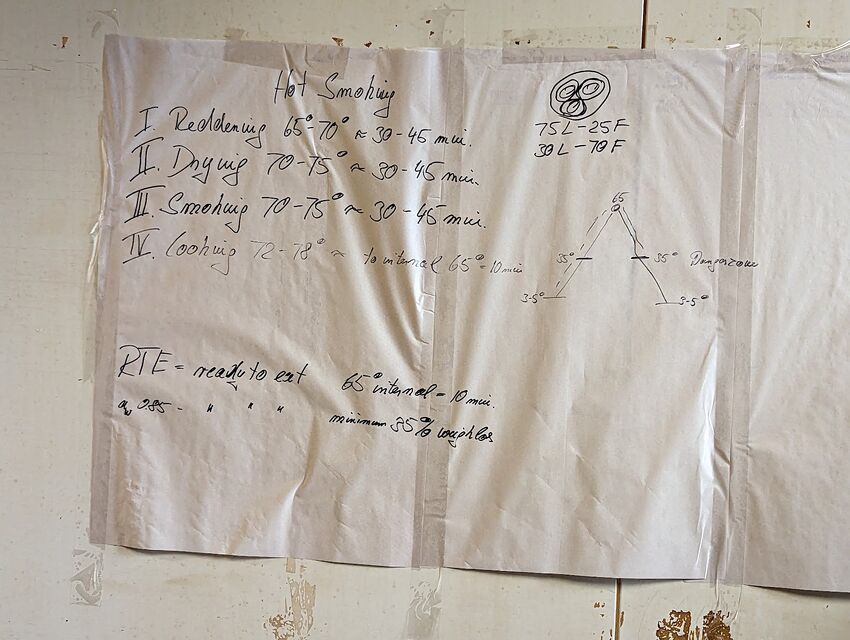 Hot Smoking
I. Reddening 65°-70° ≈ 30-45 min.
II. Drying 70-75° ≈ 30-45 min.
III. Smoking 70-75° ≈ 30-45 min.
IV. Cooking 72-78° ≈ to internal 65° = 10 min
75L-25F
30L-70F
65
35° 35° Dangerzone
3-5° 3-5°
RTE = ready to eat 65° internal = 10 min.
aw 085 - " " " minimum 35% weighlos